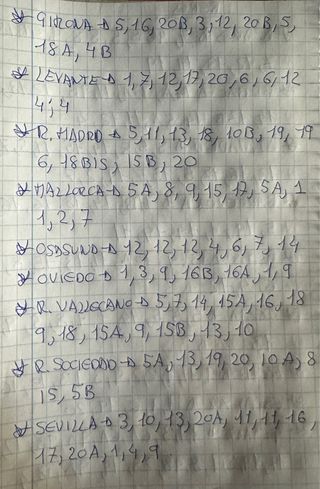 GIRONA → 5, 16, 20B, 3, 12, 20B, 5,
18A, 4B
LEVANTE → 1, 7, 12, 17, 20, 6, 6, 12
4, 4
R. MADRID → 5, 11, 13, 18, 10B, 19, 19
6, 18BIS, 15B, 20
MALLORCA → 5A, 8, 9, 15, 17, 5A, 1
1, 2, 7
OSASUNA → 12, 12, 12, 4, 6, 7, 14
OVIEDO → 1, 3, 9, 16B, 16A, 1, 9
R. VALLECANO → 5, 7, 14, 15A, 16, 18
9, 18, 15A, 9, 15B, 13, 10
R. SOCIEDAD → 5A, 13, 19, 20, 10A, 8
15, 5B
SEVILLA → 3, 10, 13, 20A, 11, 11, 16,
17, 20A, 1, 4, 9